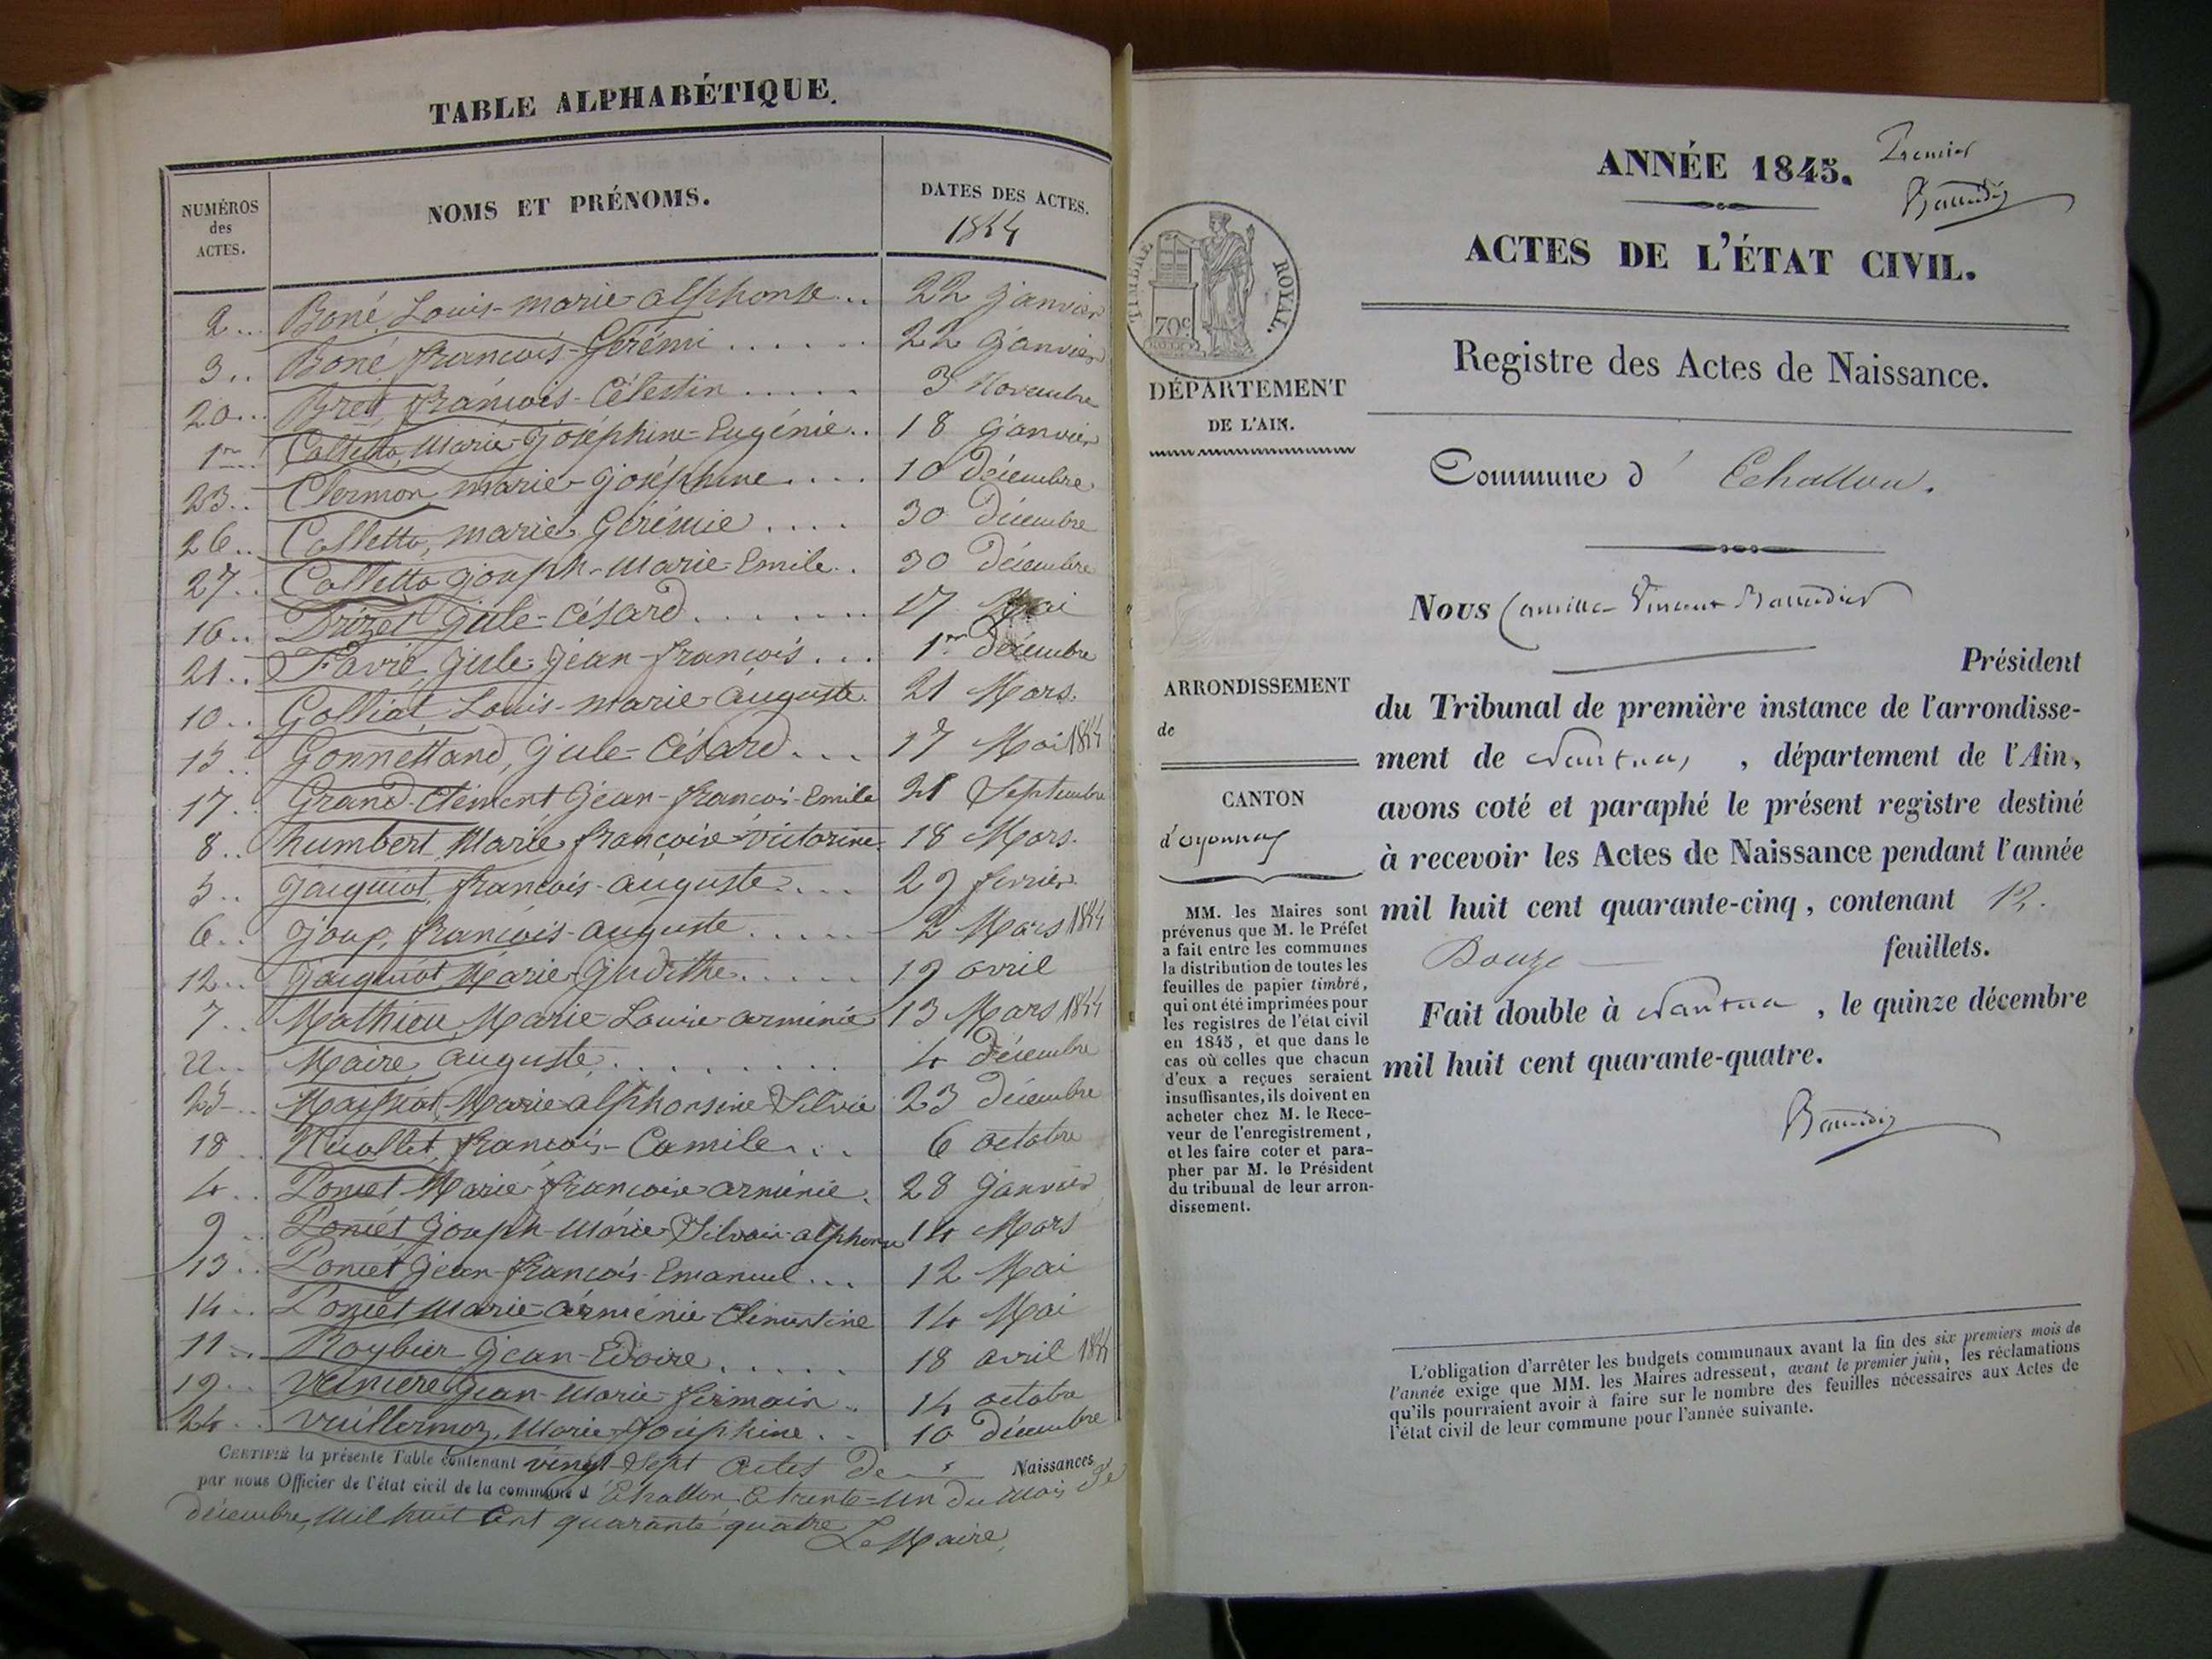 TABLE ALPHABÉTIQUE.
NUMÉROS des ACTES.
NOMS ET PRÉNOMS.
DATES DES ACTES.
1844
2... Boné, Louis-marie alphonse... 22 janvier
3.. Boné françois-Gérémi ...... 22 janvier
20... Bret, françois-Célestin ..... 3 Novembre
1er.. Colletta, Marie-Joséphine-Eugénie.. 18 janvier
23.. Clermon, marie-joséphine .... 10 décembre
26.. Colletta, marie Gérémie .... 30 décembre
27.. Colletta joseph-Marie-Emile.. 30 décembre
16.. Drizet Jule-César ....... 17 Mai
21.. Favre, Jule-Jean-françois... 1er décembre
10.. Golliat, Louis-marie-auguste. 21 Mars.
15.. Gonnettand, Jule-César ... 17 Mai 1844
17.. Grand-Clément Jean-françois-Emile 21 Septembre
8.. humbert, Marie françoise-victorine 18 Mars.
5.. Jacquiot, françois-auguste... 29 fevrier.
6.. Joup, françois-auguste ..... 2 Mars 1844
12.. Jacquiot, Marie-Judithe ..... 19 avril
7.. Mathieu, Marie-Louise-arménie 13 Mars 1844
22.. Maire, auguste ......... 4 décembre
25... Marie alphonsine Silvie 23 décembre
18.. Nicollet, françois-Camile... 6 octobre
4.. Poncet-Marie-françoise arménie. 28 janvier
9.. Poncet joseph-Marie-Silvain-alphonse 14 Mars
13.. Poncet Jean-françois-Emanuel... 12 Mai
14.. Poncet Marie-arménie Clémentine 14 Mai
11.. Roybier Jean-Edoire ..... 18 avril 1844
19.. Jean-Marie-firmain.. 14 octobre
24.. Vuillermoz, Marie-Joséphine.. 10 décembre
CERTIFIÉ la présente Table contenant vingt-sept actes de Naissances
par nous Officier de l'état civil de la commune d'Echallon, le trente-un du mois de
décembre, mil huit cent quarante quatre
Le Maire,
ANNÉE 1845.
Premier
TIMBRE ROYAL.
70c
ACTES DE L'ÉTAT CIVIL.
Registre des Actes de Naissance.
DÉPARTEMENT
DE L'AIN.
Commune d'Echallon.
Nous Camille Vincent Baudier
Président
ARRONDISSEMENT
de
du Tribunal de première instance de l'arrondisse-
ment de Nantua, département de l'Ain,
CANTON
d'oyonnax
avons coté et paraphé le présent registre destiné
à recevoir les Actes de Naissance pendant l'année
mil huit cent quarante-cinq, contenant 12.
Douze feuillets.
Fait double à Nantua, le quinze décembre
mil huit cent quarante-quatre.
MM. les Maires sont
prévenus que M. le Préfet
a fait entre les communes
la distribution de toutes les
feuilles de papier timbré,
qui ont été imprimées pour
les registres de l'état civil
en 1845, et que dans le
cas où celles que chacun
d'eux a reçues seraient
insuffisantes, ils doivent en
acheter chez M. le Rece-
veur de l'enregistrement,
et les faire coter et para-
pher par M. le Président
du tribunal de leur arron-
dissement.
L'obligation d'arrêter les budgets communaux avant la fin des six premiers mois de
l'année exige que MM. les Maires adressent, avant le premier juin, les réclamations
qu'ils pourraient avoir à faire sur le nombre des feuilles nécessaires aux Actes de
l'état civil de leur commune pour l'année suivante.